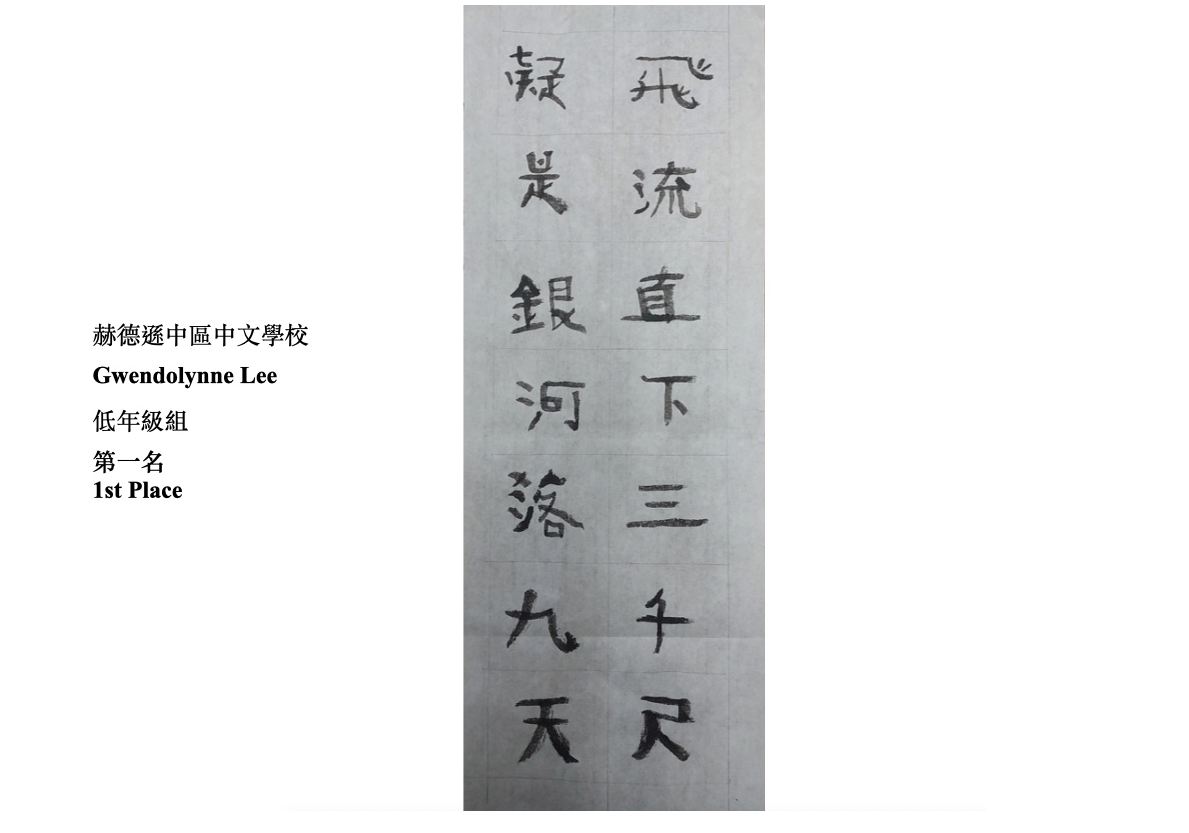 赫德遜中區中文學校
Gwendolynne Lee
低年級組
第一名
1st Place
飛流直下三千尺
疑是銀河落九天